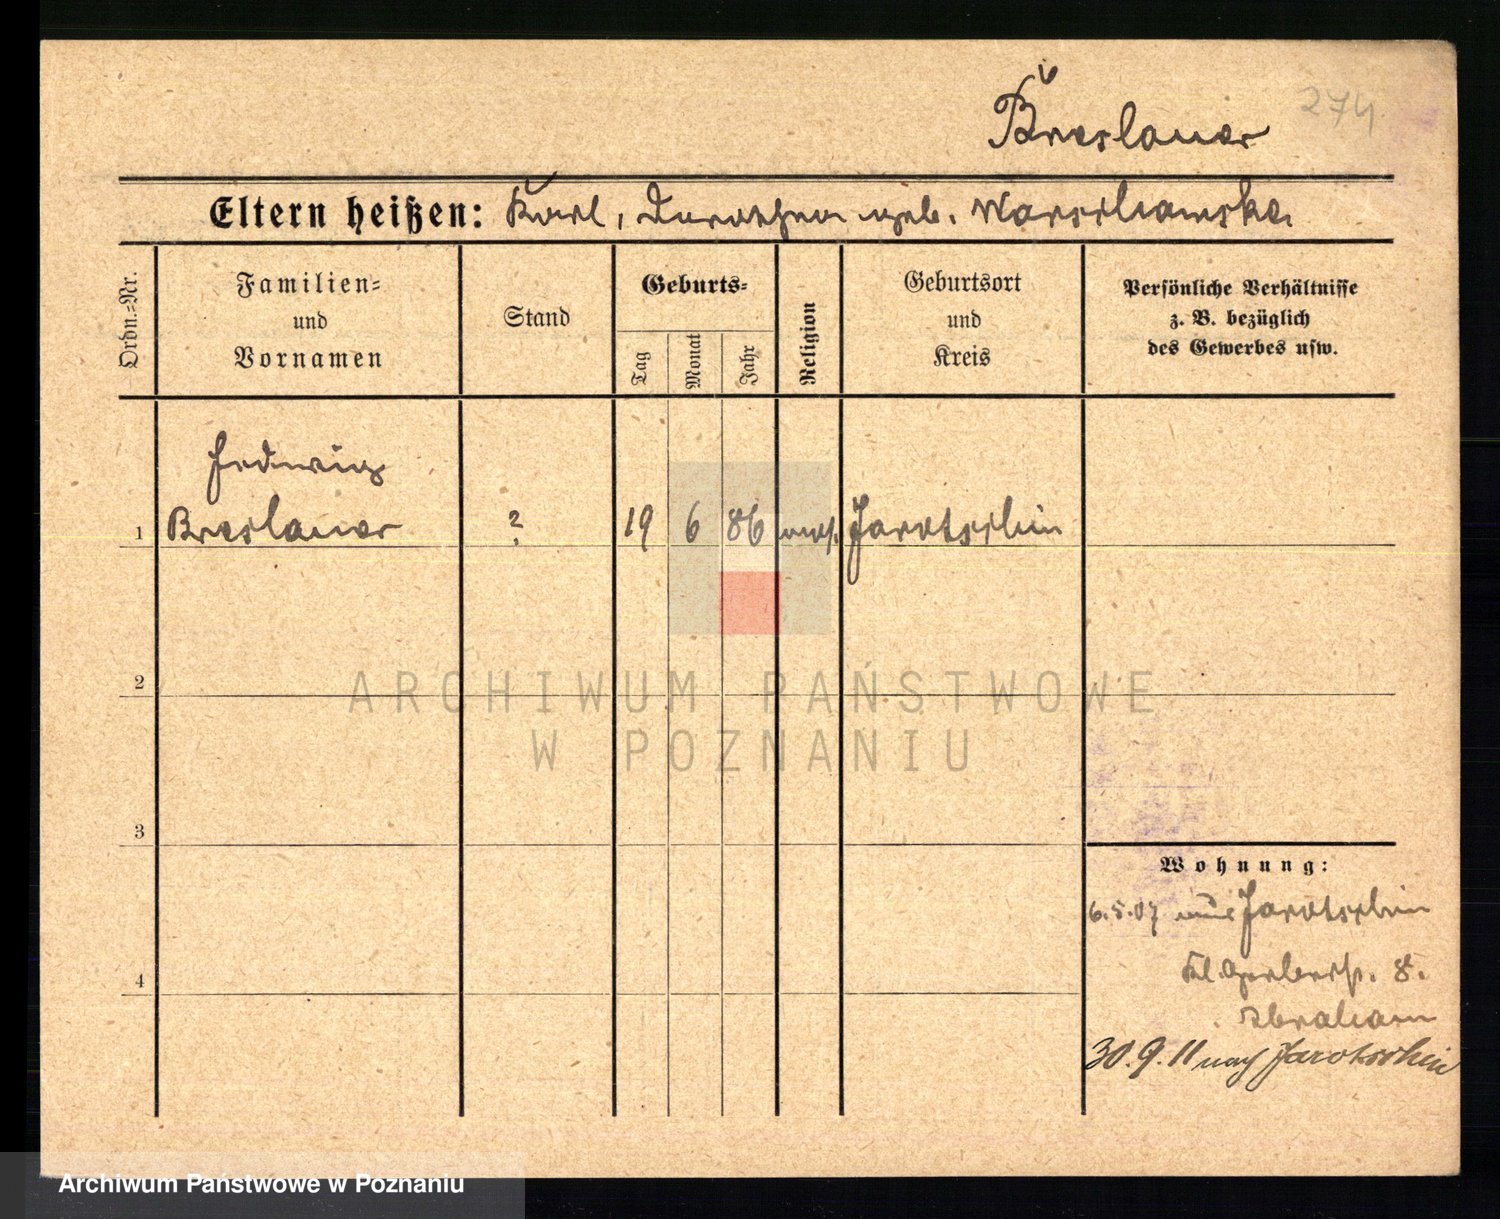 Breslauer
274
Eltern heißen: Karl, Dorothea geb. Warschawska
Ordn.-Nr.
Familien-
und
Vornamen
Stand
Geburts-
Tag
Monat
Jahr
Religion
Geburtsort
und
Kreis
Persönliche Verhältnisse
z. B. bezüglich
des Gewerbes usw.
Hedwig
1 Breslauer ? 19 6 86 mos. Jarotschin
2
3
4
Wohnung:
6.5.07 aus Jarotschin
Kl. Gerberstr. 8.
Abraham
30.9.11 nach Jarotschin
ARCHIWUM PAŃSTWOWE
W POZNANIU
Archiwum Państwowe w Poznaniu